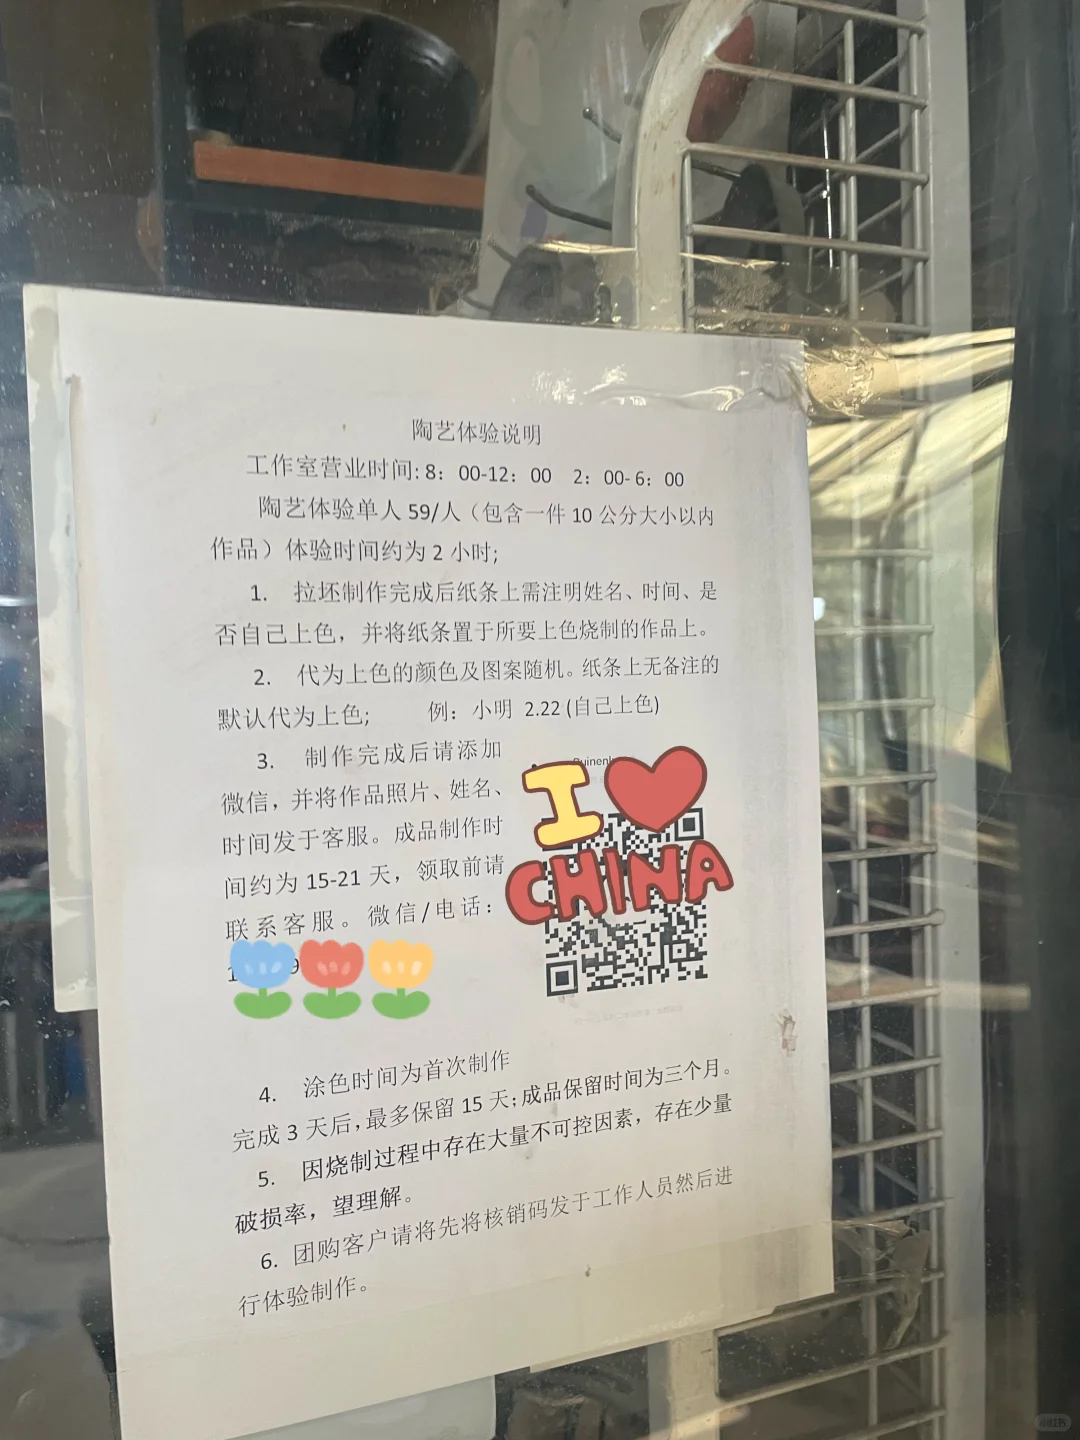 陶艺体验说明
工作室营业时间: 8：00-12：00 2：00- 6：00
陶艺体验单人 59/人（包含一件 10 公分大小以内
作品）体验时间约为 2 小时;
1. 拉坯制作完成后纸条上需注明姓名、时间、是
否自己上色，并将纸条置于所要上色烧制的作品上。
2. 代为上色的颜色及图案随机。纸条上无备注的
默认代为上色; 例：小明 2.22 (自己上色)
3. 制作完成后请添加
微信，并将作品照片、姓名、
时间发于客服。成品制作时
间约为 15-21 天，领取前请
联系客服。微信/电话：
I
CHINA
4. 涂色时间为首次制作
完成 3 天后，最多保留 15 天; 成品保留时间为三个月。
5. 因烧制过程中存在大量不可控因素，存在少量
破损率，望理解。
6. 团购客户请将先将核销码发于工作人员然后进
行体验制作。
小红书